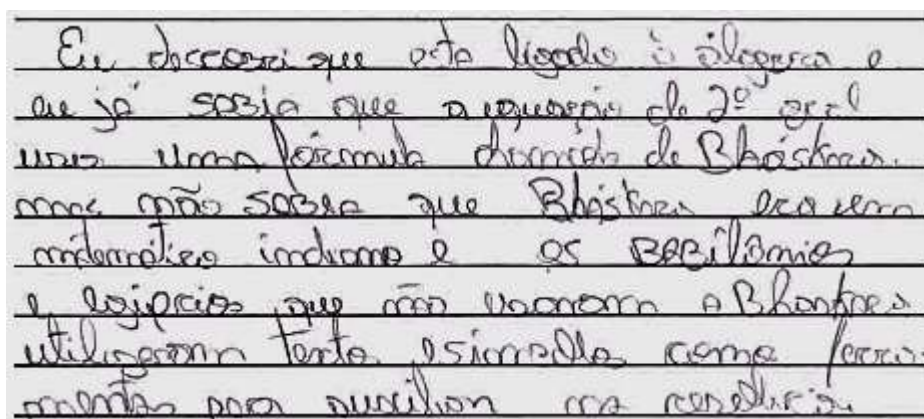 Eu descobri que esta ligado à álogebra e
eu já sabia que a equação de 2º
usa uma fórmula chamada de Bháskara.
mas não sabia que Bháskara era um
matemático indiano e os BABilônios
e egipcios que não usavam a Bhaskara
utilizaram texto e simbolos como ferra
mentas para auxiliar na resolução